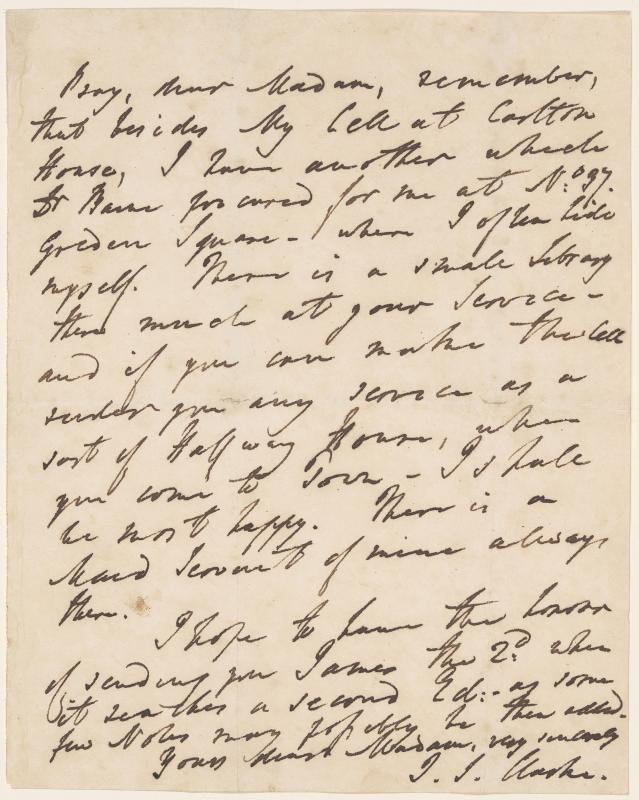 Pray, dear Madam, remember,
that besides My Cell at Carlton
House, I have another which
Dr Barne procured for me at No: 37.
Golden Square - where I often hide
myself. There is a small Library
there much at your Service -
and if you can make the Cell
render you any service as a
sort of Halfway House, when
you come to Town - I shall
be most happy. There is a
Maid Servant of mine always
there.
I hope to have the honour
of sending you James the 2d. when
it reaches a second Ed: - as some
few Notes may possibly be then added.
Yours dear Madam, very sincerely
J. S. Clarke.